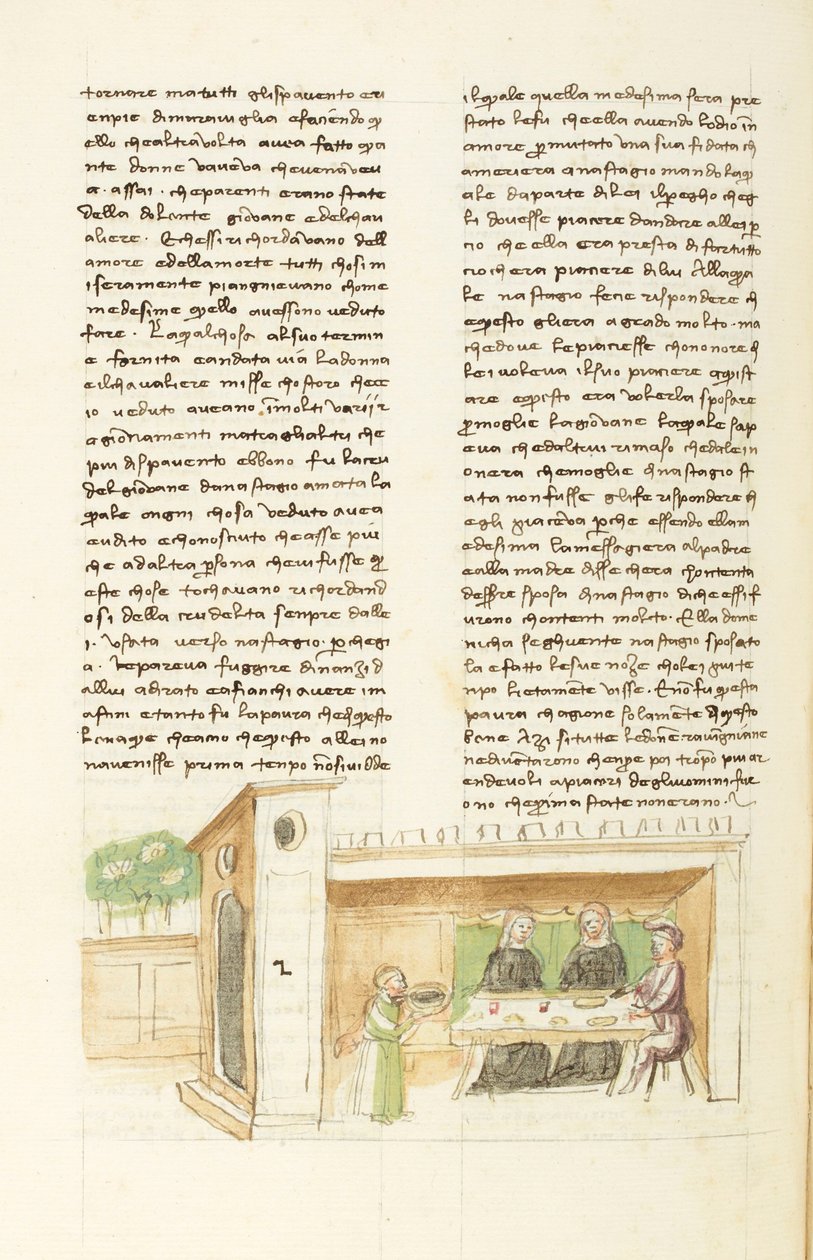 tornare ma tutti gli spavento eri
enpie di miraviglia e faciendo qu
ello che altra volta avea fatto qua
nte donne vaveva che venavevu
a assai. che parenti erano state
della dolente giovane e del chav
aliere. E che ssi richordavano dell
amore e della morte tutti chosi m
iseramente piangnievano chome
medesime quello avessono veduto
fare. La qual chosa al suo termin
e fornita e andata via la donna
e il chavaliere misse chostoro che cc
io veduto aveano in molti varii r
agionamenti ma tra gli altri che
piu di spavento ebbono fu la cru
del giovane da nastagio amata la
quale ongni chosa veduto avea
e udito e chonosciuto che a sse piu
che ad altra persona che vi fusse qu
este chose tochavano richordand
osi della crudelta senpre da lle
i. usata verso nastagio. per che gi
a. le pareva fuggire dinanzi d
a llui adirato e a fianchi avere i m
astini e tanto fu la paura che di questo
le naque che acio che questo a llei no
n avenisse prima tenpo non si vidde
il quale quella medesima sera pre
stato le fu che ella avendo l odio in
amore permutato una sua fidata ch
ameriera a nastagio mando la qu
ale da parte di lei il pregho cheg
li dovesse piacere d andare a llei per
cio che ella era presta di far tutto
cio ch era piaciere di lui Alla qua
le nastagio fecie rispondere ch
e questo gli era a grado molto. ma
che dove le piaciesse chon onore d
i lei voleva il suo piaciere aquist
are e questo era volerla sposare
per moglie la giovane la quale sap
eva che d altrui rimaso che da lei n
on era che moglie di nastagio st
ata non fusse gli fe rispondere ch
egli piaceva per che essendo ella m
edesima la messagiera al padre
e alla madre disse che era chontenta
d essere sposa di nastagio di che essi f
urono chontenti molto. E lla dome
nicha seghuente nastagio sposato
la e fatto le sue noze cho lei gui te
npo lietamente visse. E non fu questa
paura chagione solamente di questo
bene Azi si tutte le donne ravingniane
ne diventarono che senpre poi tropo piu ar
endevoli a piaceri degli uomini fur
ono che prima state non erano.